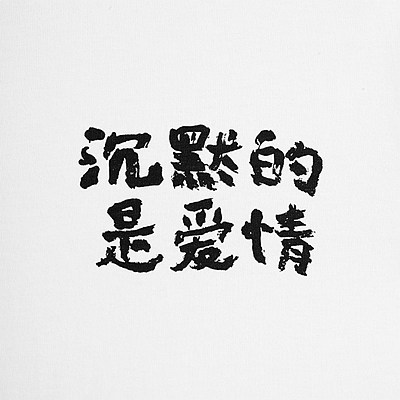 沉默的
是爱情